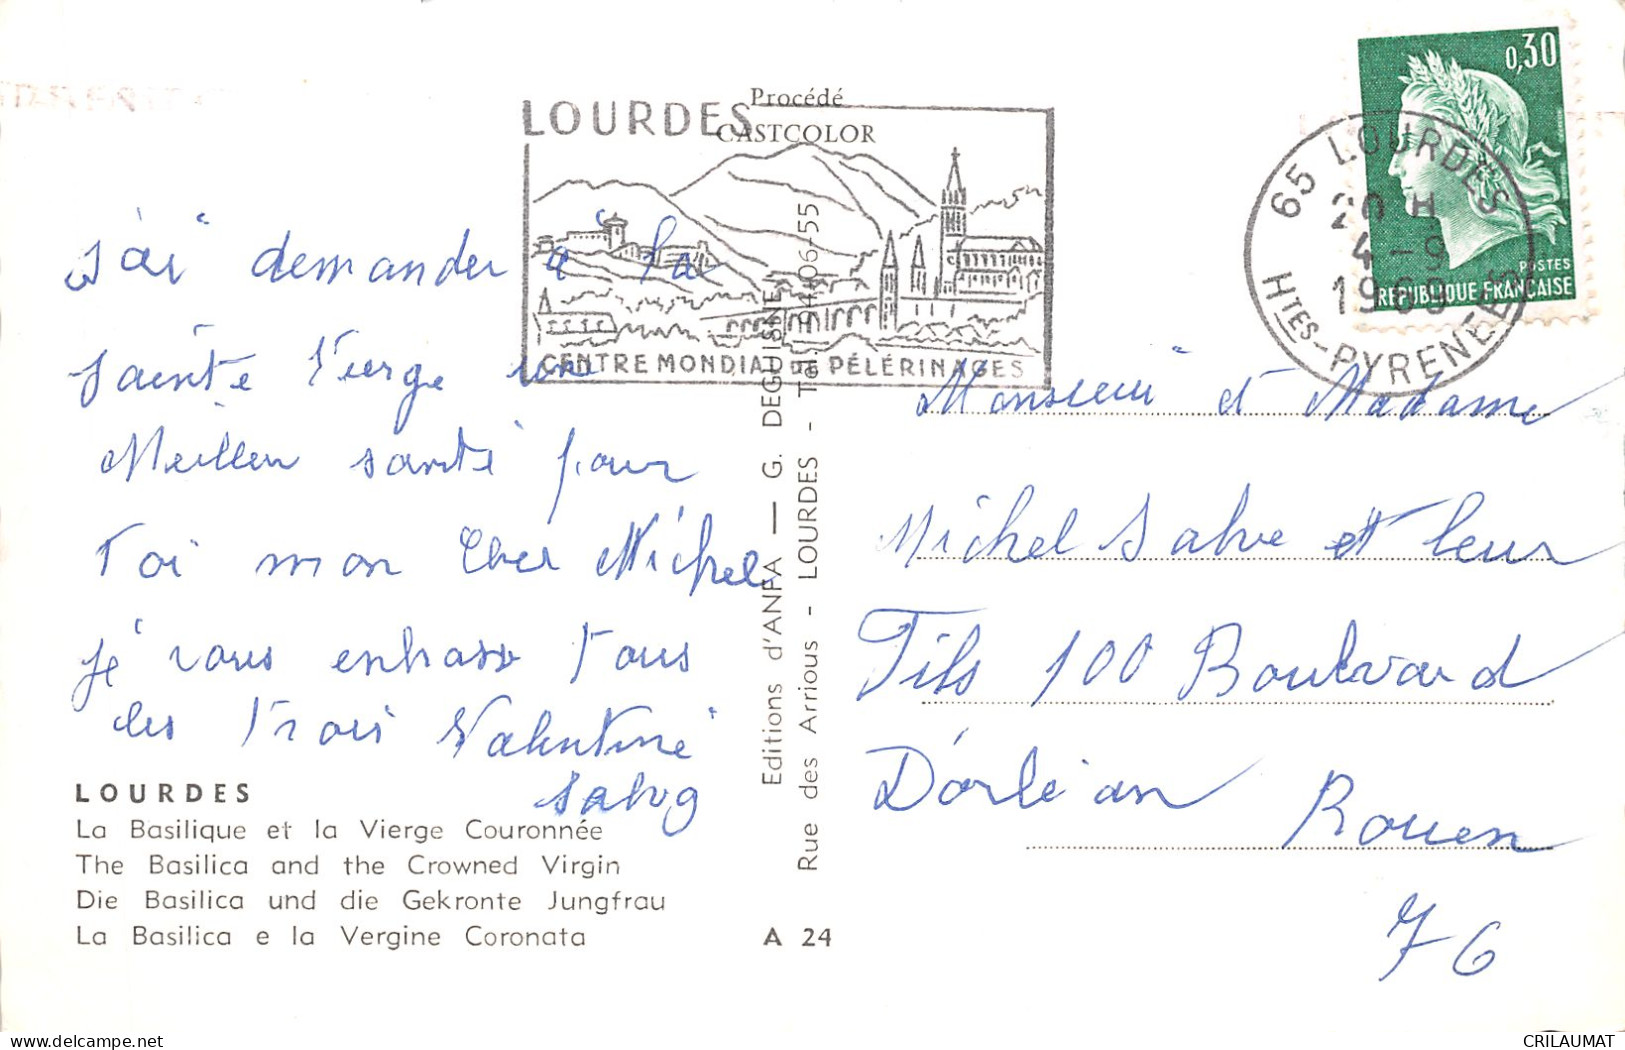 Procédé
CASTCOLOR
LOURDES
CENTRE MONDIAL DE PÉLÉRINAGES
0,30
POSTES
REPUBLIQUE FRANÇAISE
65 LOURDES
20 H
24-9
1969
HTES-PYRENEES
j'ai demander à la
sainte Vierge une
Meilleu santé pour
Toi mon Cher Michel
je vous enbrasse Tous
les Trois Valentine
Salvy
Monsieur et Madame
Michel Salve et leur
Fils 100 Boulvard
D'orléan
Rouen
76
Editions d'ANFA — G. DEGUISNE
Rue des Arrious - LOURDES - Tél. 94-06-55
LOURDES
La Basilique et la Vierge Couronnée
The Basilica and the Crowned Virgin
Die Basilica und die Gekronte Jungfrau
La Basilica e la Vergine Coronata
A 24
CRILAUMAT